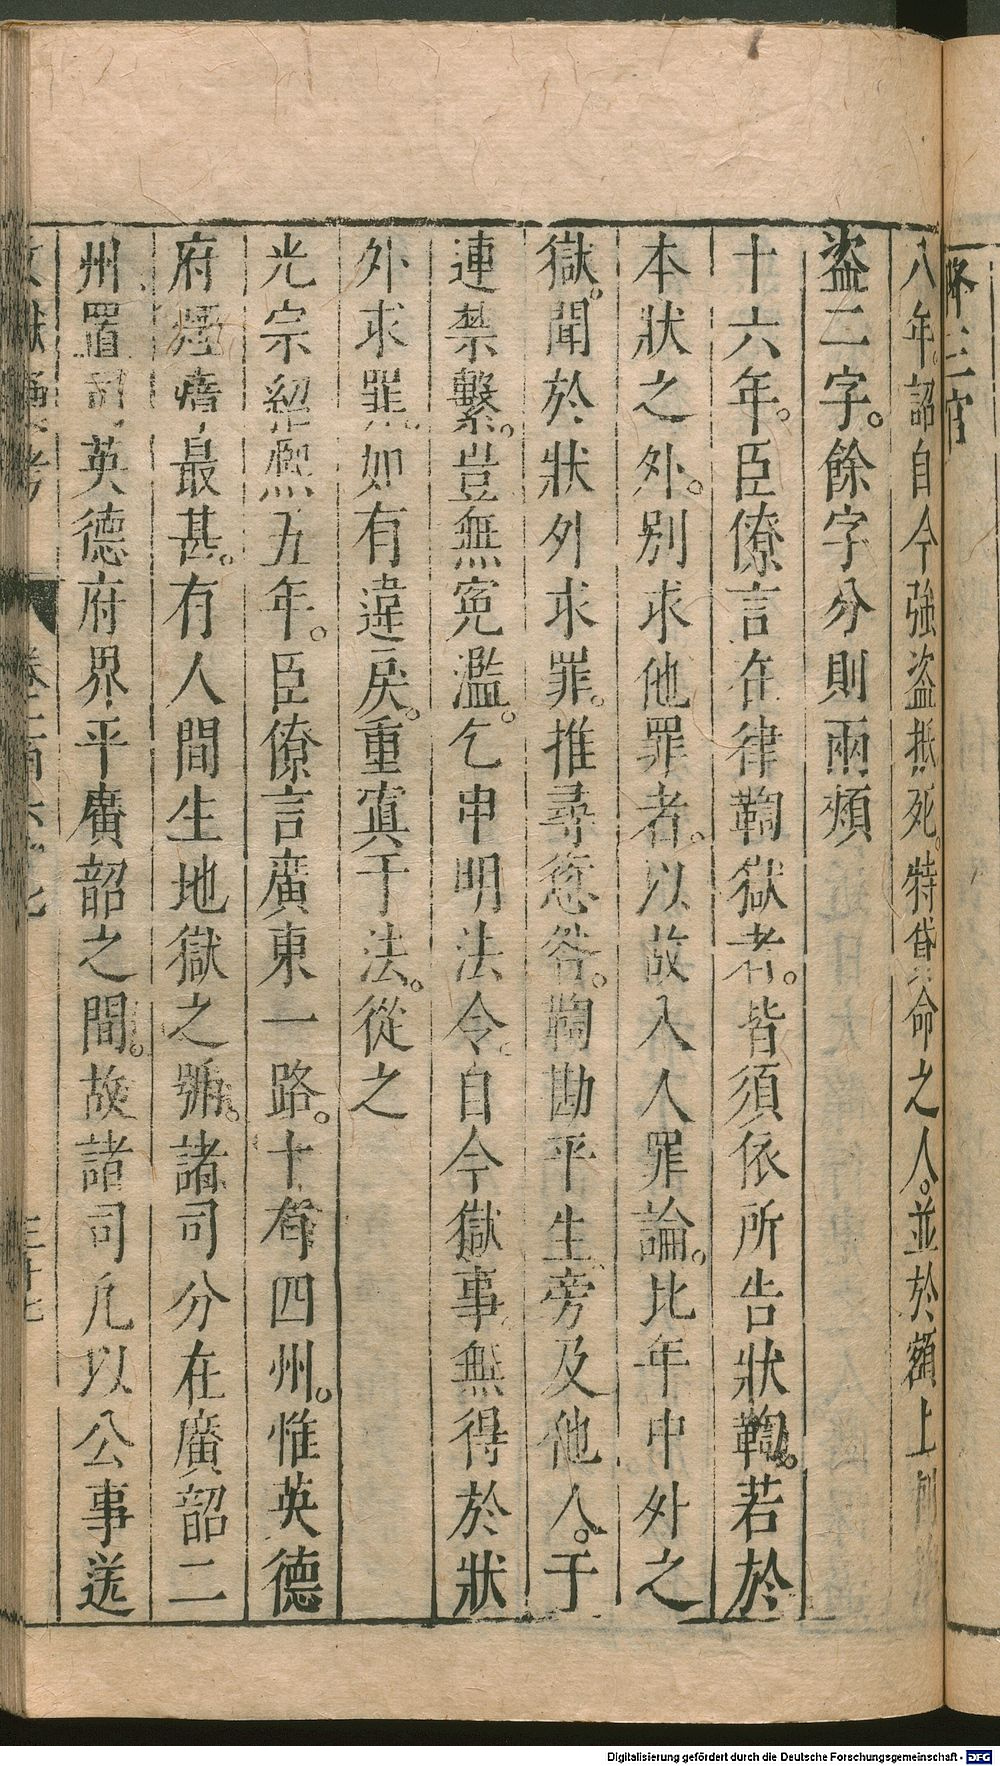 降三官
八年。詔自今強盜抵死。特貸命之人。並於額上刺強
盜二字。餘字分刺兩頰
十六年。臣僚言在律鞫獄者。皆須依所告狀鞫。若於
本狀之外。別求他罪者。以故入人罪論。比年中外之
獄。聞於狀外求罪。推尋愆咎。鞫勘平生。旁及他人。于
連禁繫。豈無寃濫。乞申明法令。自今獄事。無得於狀
外求罪。如有違戾。重寘于法。從之
光宗紹熙五年。臣僚言廣東一路。十有四州。惟英德
府煙瘴最甚。有人間生地獄之號。諸司分在廣韶二
州置司。英德府界乎廣韶之間。故諸司凡以公事送
文獻通考 卷一百六十七 三十七
Digitalisierung gefördert durch die Deutsche Forschungsgemeinschaft - DFG